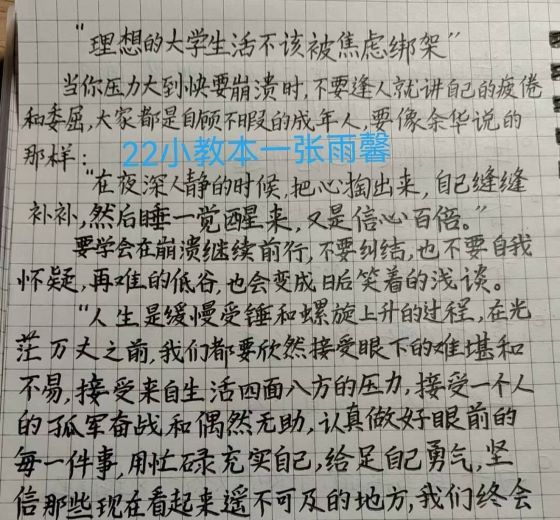 “理想的大学生活不该被焦虑绑架”
当你压力大到快要崩溃时,不要逢人就讲自己的疲倦
和委屈,大家都是自顾不暇的成年人,要像余华说的
那样:
22小教本一张雨馨
“在夜深人静的时候,把心掏出来,自己缝缝
补补,然后睡一觉醒来,又是信心百倍。”
要学会在崩溃继续前行,不要纠结,也不要自我
怀疑,再难的低谷,也会变成日后笑着的浅谈。
“人生是缓慢受锤和螺旋上升的过程,在光
茫万丈之前,我们都要欣然接受眼下的难堪和
不易,接受来自生活四面八方的压力,接受一个人
的孤军奋战和偶然无助,认真做好眼前的
每一件事,用忙碌充实自己,给足自己勇气,坚
信那些现在看起来遥不可及的地方,我们终会